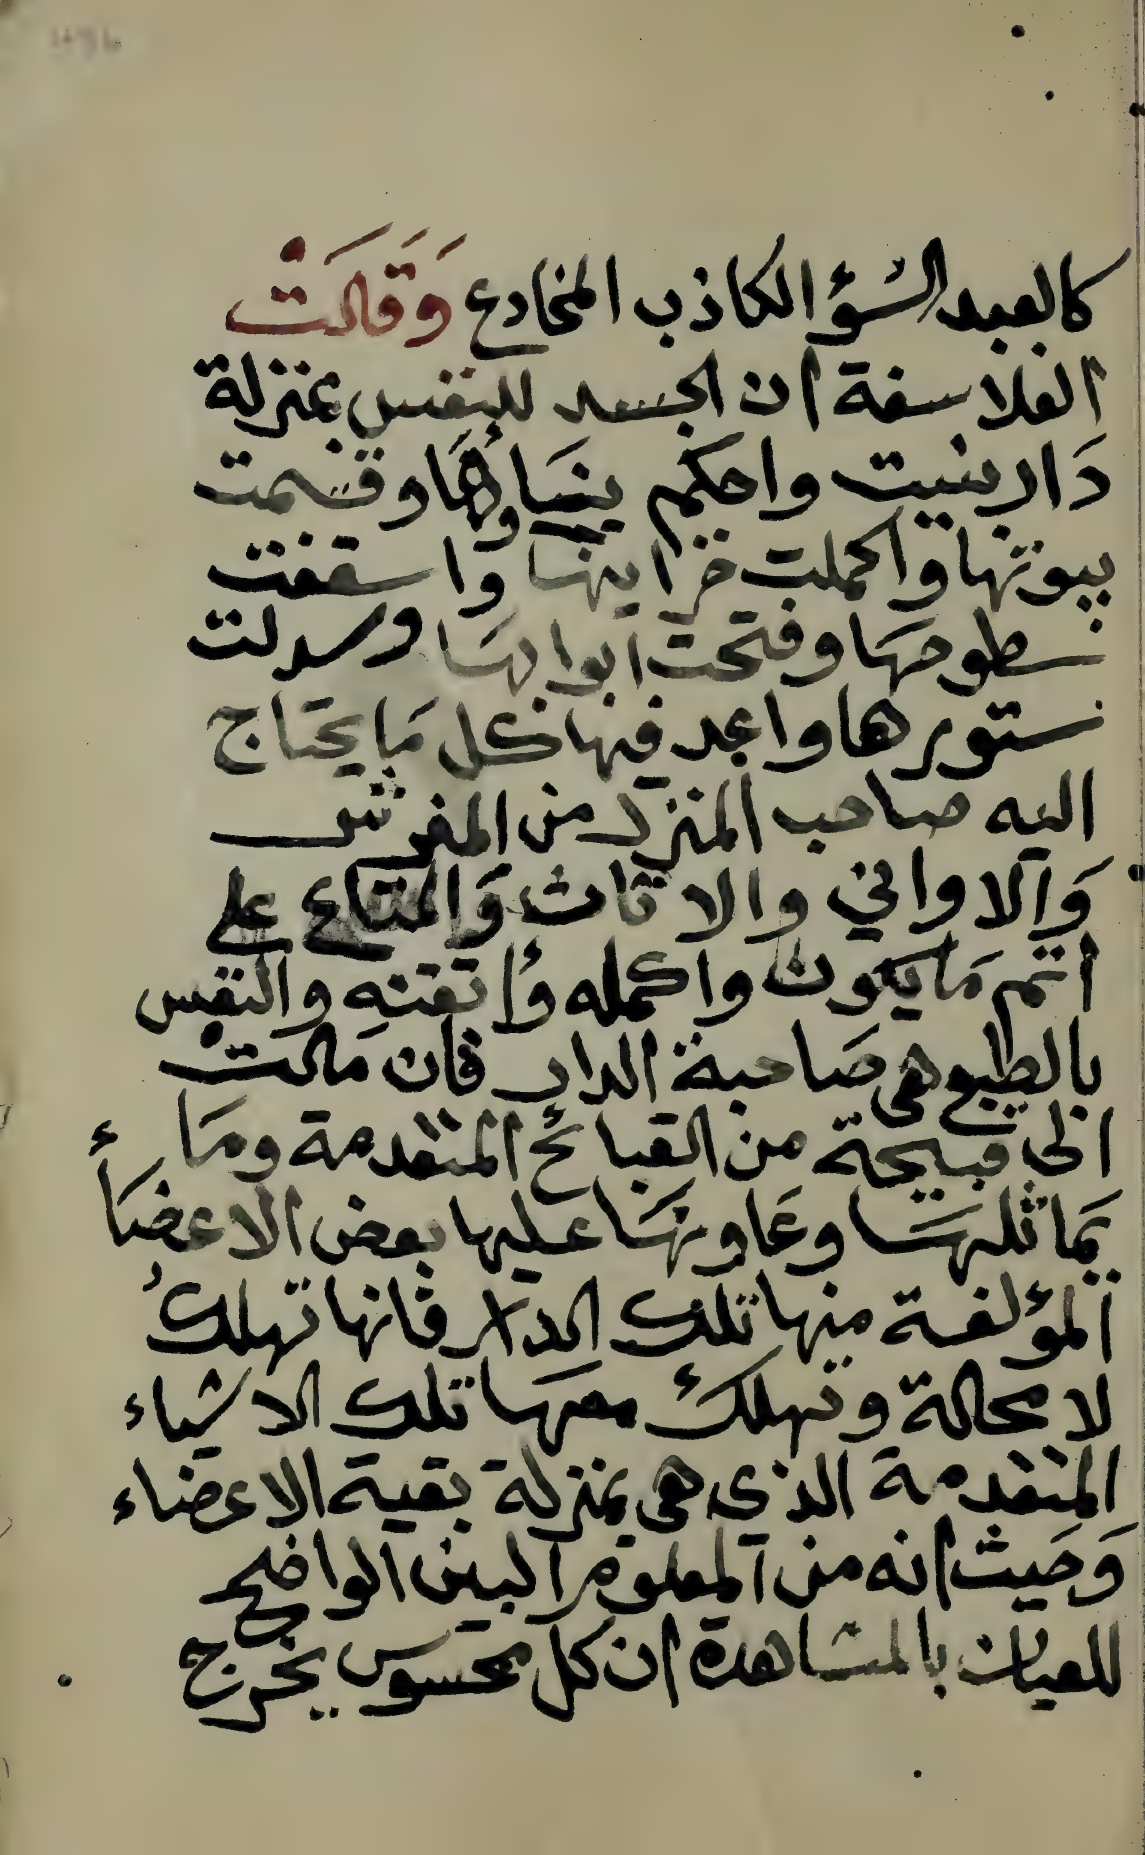 كالعبد السؤ الكاذب المخادع وَقَالَتْ
الفلاسفة ان الجسد للنفس بمنزلة
دَار بنيت واحكم بنَاؤهَا وقسمت
بيوتها واكملت خزاينها واسقفت
سطوحهَا وفتحت ابوابهَا وسدلت
ستورها واعد فيها كل مَا يحتاج
اليه صاحب المنزل من المفرش
وَالاواني والاثاث وَالمتاع علي
اتم مَا يكون واكمله وأتقنه والنفس
بالطبع هى صَاحبة الدار فان مَالتْ
الي قبيحة من القبائح المتقدمة ومَا
يماثلهَا وعَاونهَا عليها بعض الاعضَاء
المؤلفة منها تلك الدار فانها تهلكُ
لا محالة وتهلك معهَا تلك الاشياء
المتقدمة الذي هى بمنزلة بقية الاعضاء
وَحَيث انه من المعلوم البين الواضح
للعيان بالمشاهدة ان كل محسوس يخرج